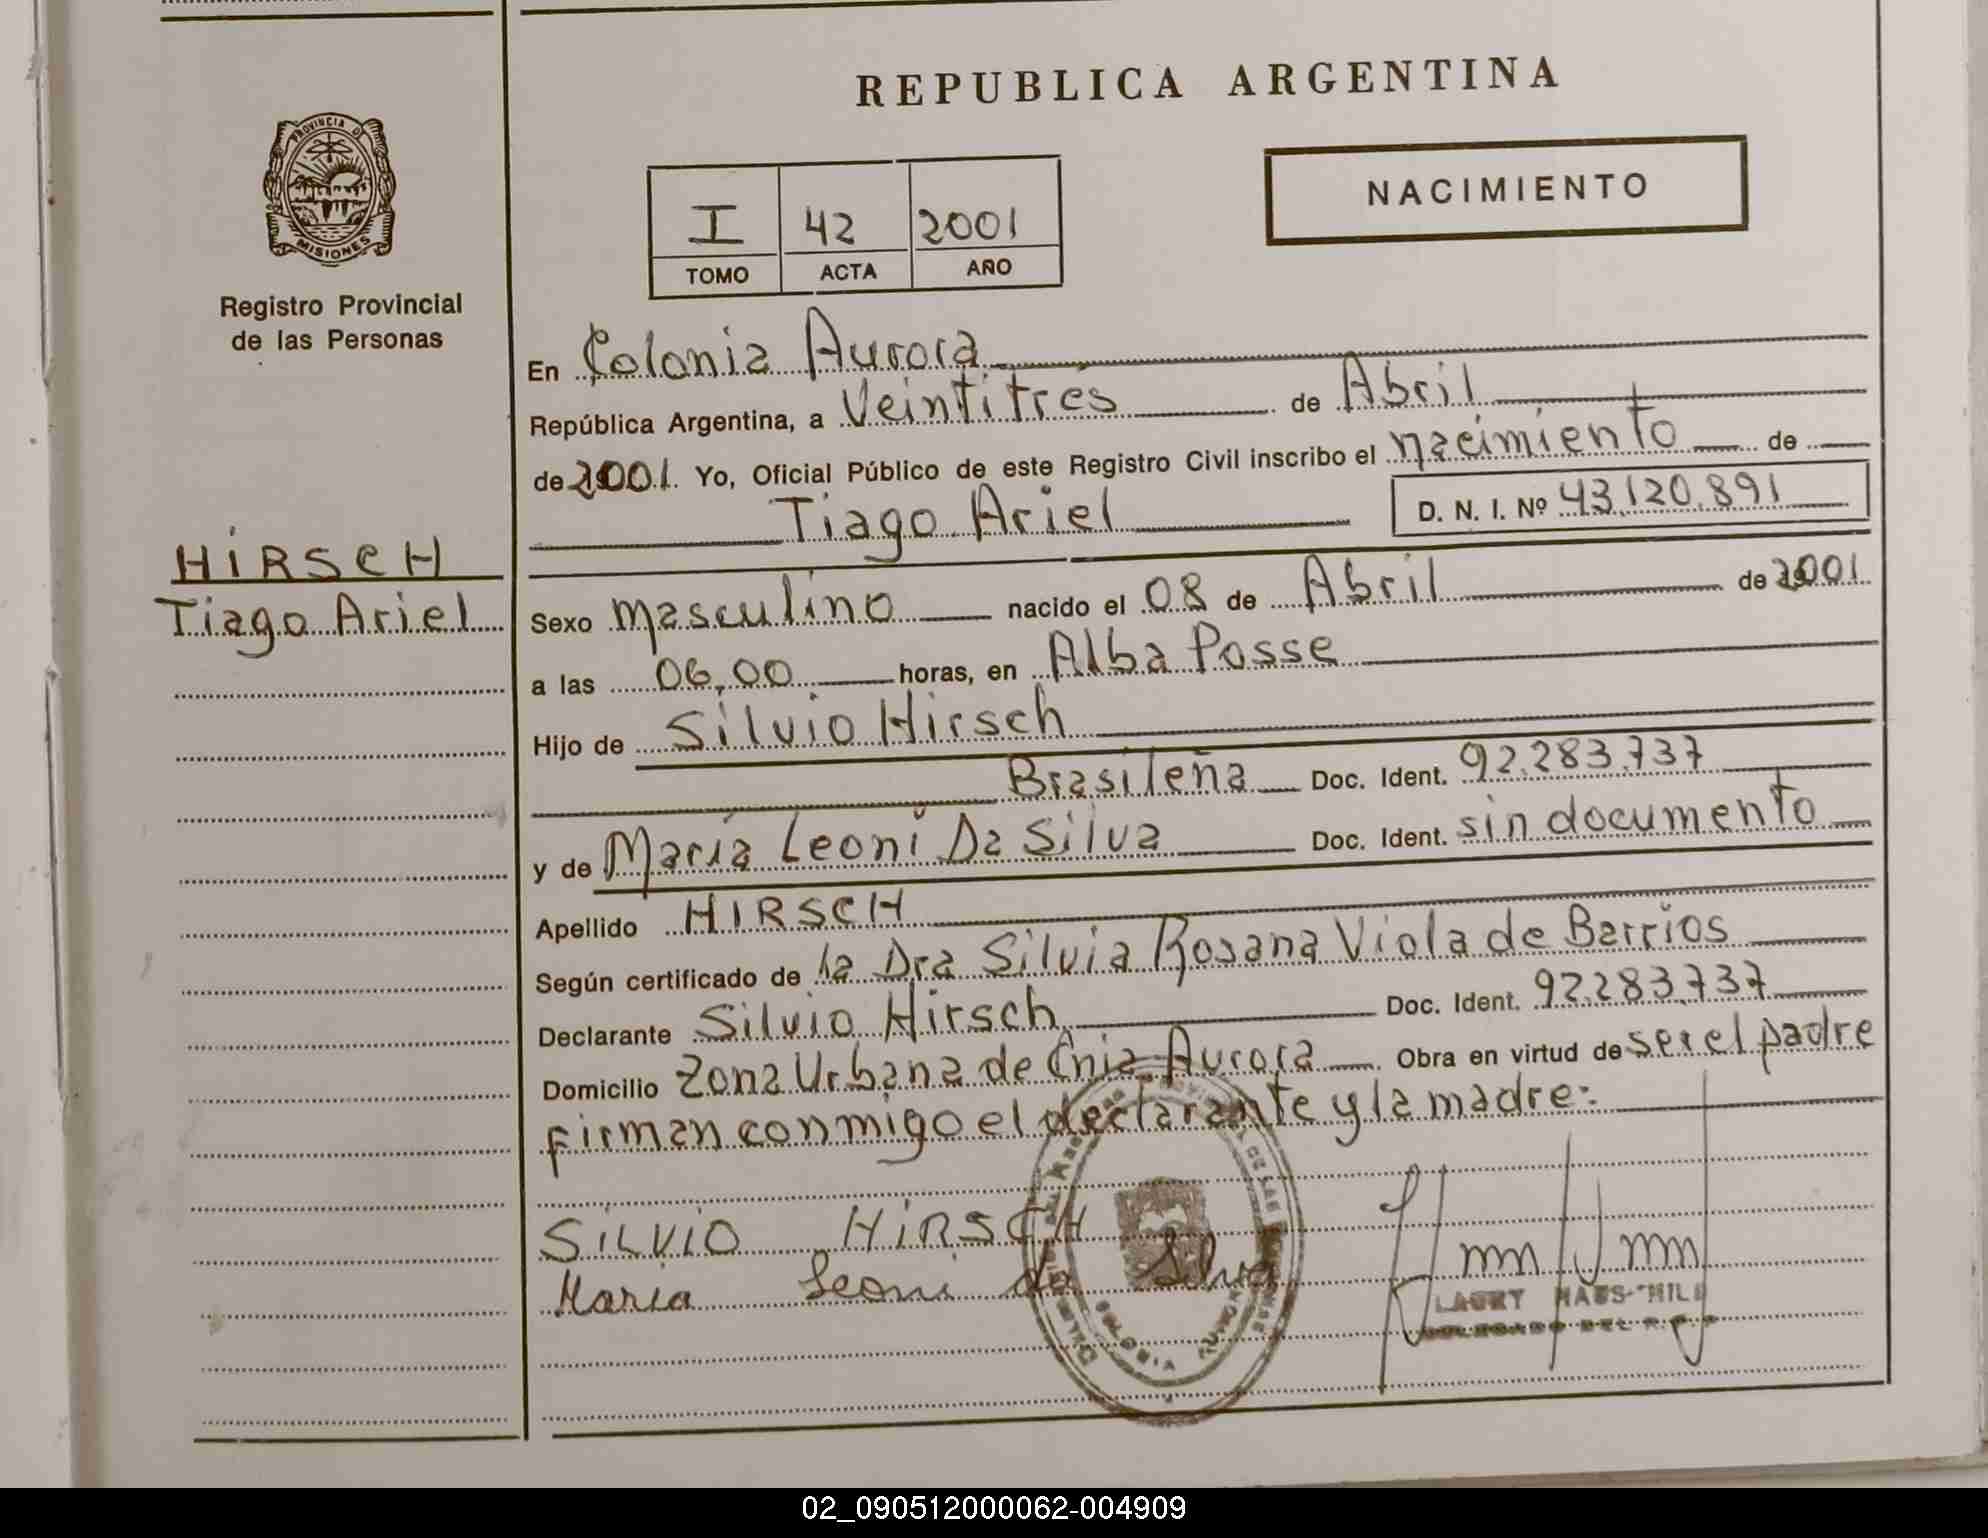 REPUBLICA ARGENTINA
PROVINCIA DE
MISIONES
Registro Provincial
de las Personas
HIRSCH
Tiago Ariel
I 42 2001
TOMO ACTA AÑO
NACIMIENTO
En Colonia Aurora
República Argentina, a Veintitres de Abril
de 2001. Yo, Oficial Público de este Registro Civil inscribo el nacimiento de
Tiago Ariel D. N. I. Nº 43.120.891
Sexo masculino nacido el 08 de Abril de 2001
a las 06,00 horas, en Alba Posse
Hijo de Silvio Hirsch
Brasileña Doc. Ident. 92.283.737
y de María Leoni Da Silva Doc. Ident. sin documento
Apellido HIRSCH
Según certificado de la Dra Silvia Rosana Viola de Barrios
Declarante Silvio Hirsch Doc. Ident. 92.283.737
Domicilio Zona Urbana de Cnia. Aurora Obra en virtud de ser el padre
firman conmigo el declarante y la madre:
SILVIO HIRSCH
Maria Leoni da Silva
02_090512000062-004909